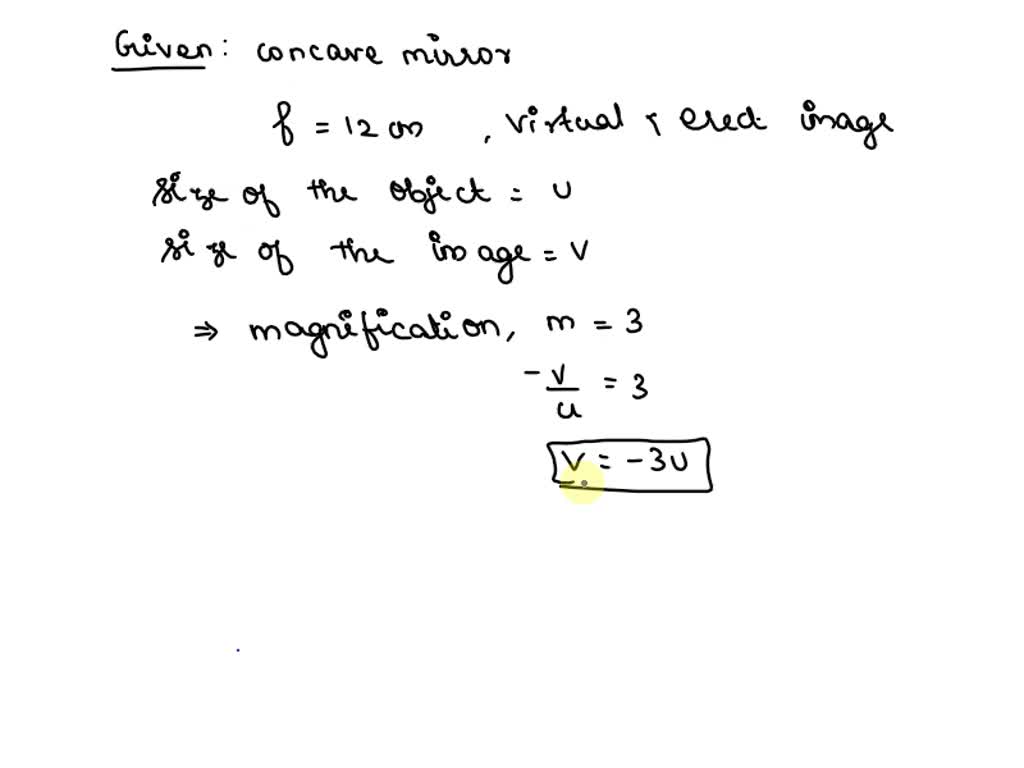 Given: concave mirror
f = 12 cm, virtual & erect image
size of the object = u
size of the image = v
⇒ magnification, m = 3
-v/u = 3
v = -3u